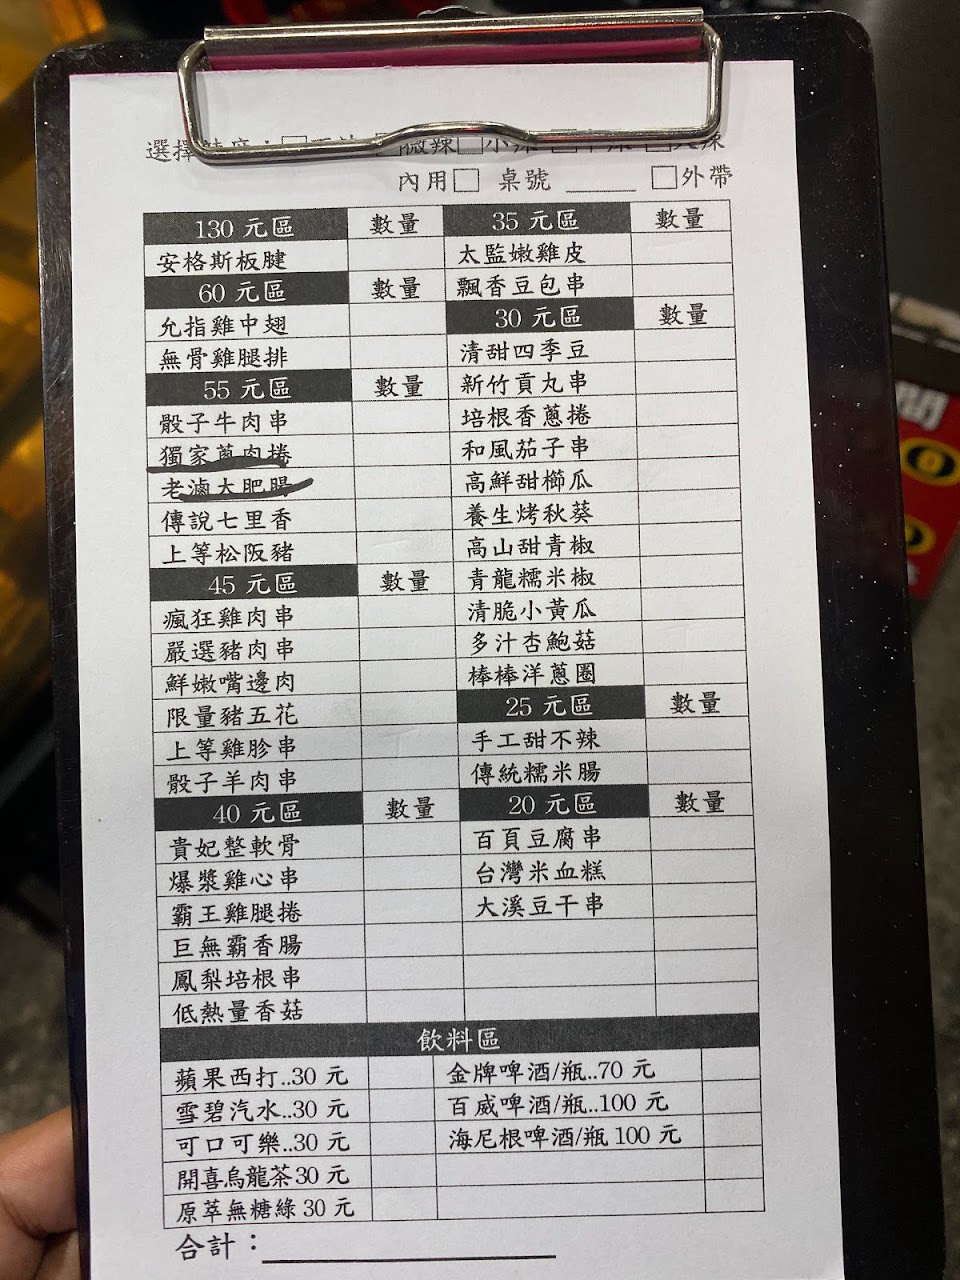 選擇辣度：□ □微辣□小辣□中辣□大辣
內用□ 桌號 ____ □外帶
130 元區 數量
安格斯板腱
60 元區 數量
允指雞中翅
無骨雞腿排
55 元區 數量
骰子牛肉串
獨家蔥肉捲
老滷大肥腸
傳說七里香
上等松阪豬
45 元區 數量
瘋狂雞肉串
嚴選豬肉串
鮮嫩嘴邊肉
限量豬五花
上等雞胗串
骰子羊肉串
40 元區 數量
貴妃整軟骨
爆漿雞心串
霸王雞腿捲
巨無霸香腸
鳳梨培根串
低熱量香菇
35 元區 數量
太監嫩雞皮
飄香豆包串
30 元區 數量
清甜四季豆
新竹貢丸串
培根香蔥捲
和風茄子串
高鮮甜櫛瓜
養生烤秋葵
高山甜青椒
青龍糯米椒
清脆小黃瓜
多汁杏鮑菇
棒棒洋蔥圈
25 元區 數量
手工甜不辣
傳統糯米腸
20 元區 數量
百頁豆腐串
台灣米血糕
大溪豆干串
飲料區
蘋果西打..30 元
雪碧汽水..30 元
可口可樂..30 元
開喜烏龍茶30 元
原萃無糖綠 30 元
金牌啤酒/瓶..70 元
百威啤酒/瓶..100 元
海尼根啤酒/瓶 100 元
合計：